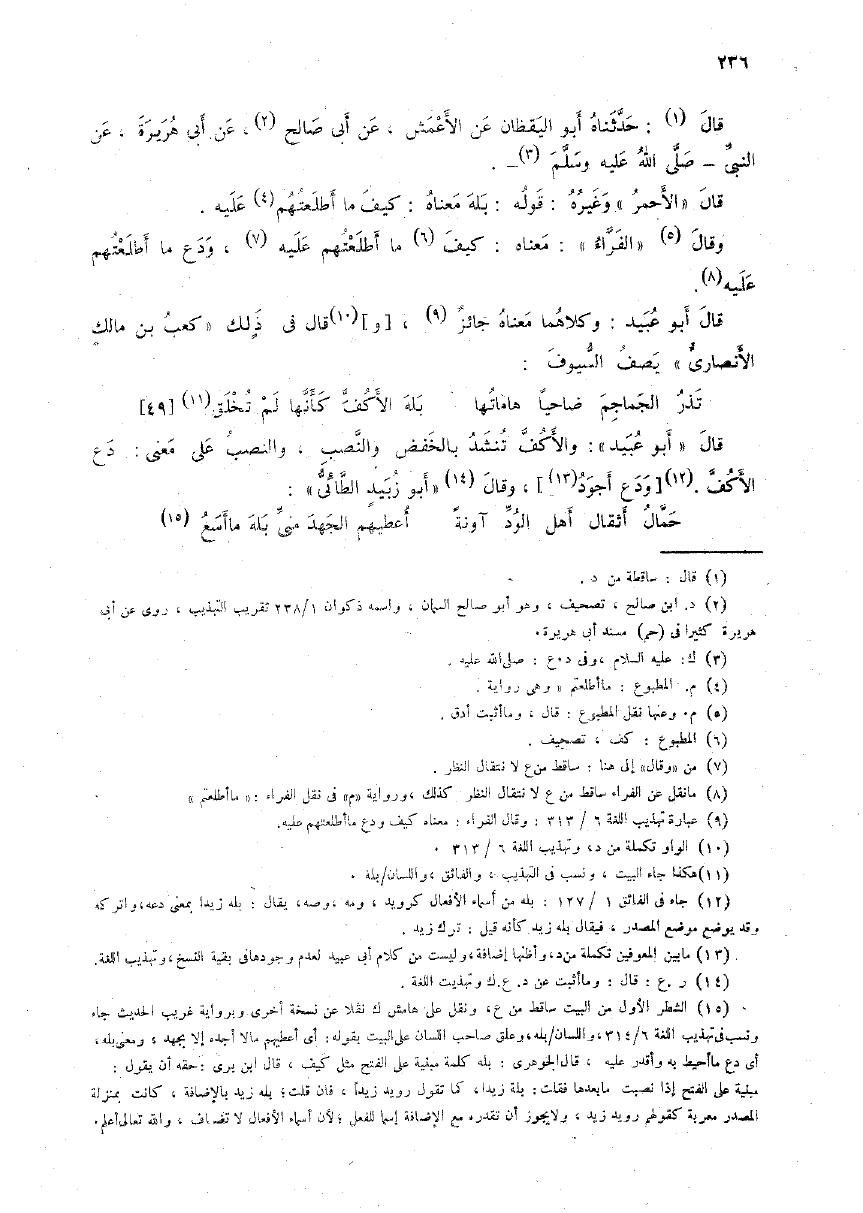 ٢٣٦
قالَ (١) : حَدَّثَناهُ أَبو اليَقظان عَن الأَعْمَش ، عَن أَبى صَالح (٢) ، عَن أَبى هُرَيرَةَ ، عَن
النبىِّ – صَلَّى اللهُ عَليه وسَلَّمَ (٣) – .
قالَ «الأَحمرُ» وَغَيرُهُ : قَولُه : بَلهَ مَعناهُ : كيفَ ما أَطلَعتُهُم (٤) عَلَيه .
وقالَ (٥) «الفَرَّاءُ» : مَعناه : كيفَ (٦) ما أَطلَعْتُهم عَلَيه (٧) ، وَدَع ما أَطلَعْتُهم
عَلَيه (٨) .
قالَ أَبو عُبَيد : وكلاهُما مَعناهُ جائزٌ (٩) ، [و] (١٠) قال فى ذَلك «كعبُ بن مالك
الأَنصارىُّ» يَصفُ السُّيوفَ :
تَذرُ الجَماجمَ ضاحياً هاماتُها بَلهَ الأَكفَّ كَأَنَّها لَمْ تُخْلَق (١١) [٤٩]
قالَ «أَبو عُبَيد» : والأَكفَّ تُنشَدُ بالخَفض والنَّصب ، والنصبُ عَلى مَعنى : دَع
الأَكفَّ . (١٢) [وَدَع أَجوَدُ (١٣)] ، وقالَ (١٤) «أَبو زُبَيدٍ الطَّائىُّ» :
حَمَّالُ أَثقال أَهل الوُدِّ آونةً أُعطيهم الجَهدَ منىِّ بَلهَ ماأَسَعُ (١٥)
(١) قال : ساقطة من د .
(٢) د. ابن صالح ، تصحيف ، وهو أبو صالح السمان ، واسمه ذكوان ٢٣٨/١ تقريب التهذيب ، روى عن أبى
هريرة كثيرا فى (حم) مسند أبى هريرة.
(٣) ك: عليه السلام ، وفى د.ع : صلى الله عليه .
(٤) م. المطبوع : ماأطلعتم « وهى رواية .
(٥) م. وعنها نقل المطبوع : قال ، وماأثبت أدق .
(٦) المطبوع : كف ، تصحيف .
(٧) من «وقال» إلى هنا : ساقط من ع لا نتقال النظر .
(٨) مانقل عن الفراء ساقط من ع لا نتقال النظر كذلك ، ورواية «م» فى نقل الفراء : « ماأطلعتم »
(٩) عبارة تهذيب اللغة ٦ / ٣١٣ : وقال الفراء : معناه كيف ودع ماأطلعتهم عليه.
(١٠) الواو تكملة من د، وتهذيب اللغة ٦ / ٣١٣ .
(١١) هكذا جاء البيت ، ونسب فى التهذيب ، والفائق ، واللسان/بله .
(١٢) جاء فى الفائق ١ / ١٢٧ : بله من أسماء الأفعال كرويد ، ومه ، وصه، يقال : بله زيدا بمعنى دعه، واتركه
وقد يوضع موضع المصدر ، فيقال بله زيد كأنه قيل : ترك زيد .
(١٣) مابين المعوفين تكملة من د، وأظنها إضافة، وليست من كلام أبى عبيد لعدم وجودها فى بقية النسخ، وتهذيب اللغة.
(١٤) ر . ع : قال : وماأثبت عن د. ع.ك وتهذيت اللغة .
(١٥) الشطر الأول من البيت ساقط من ع، ونقل على هامش ك نقلا عن نسخة أخرى وبرواية غريب الحديث جاء
ونسب فى تهذيب اللغة ٣١٤/٦، واللسان/بله، وعلق صاحب اللسان على البيت بقوله: أى أعطيهم مالا أجده إلا بجهد ، ومعنى بله،
أى دع ماأحيط به وأقدر عليه ، قال الجوهرى : بله كلمة مبنية على الفتح مثل كيف ، قال ابن برى : حقه أن يقول :
مبنية على الفتح إذا نصبت مابعدها فقلت: بلة زيدا، كما تقول رويد زيداً ، فان قلت؛ بله زيد بالإضافة ، كانت بمنزلة
المصدر معربة كقولهم رويد زيد ، ولايجوز أن تقدره مع الإضافة إسما للفعل ؛ لأن أسماء الأفعال لا تضاف ، والله تعالى أعلم.